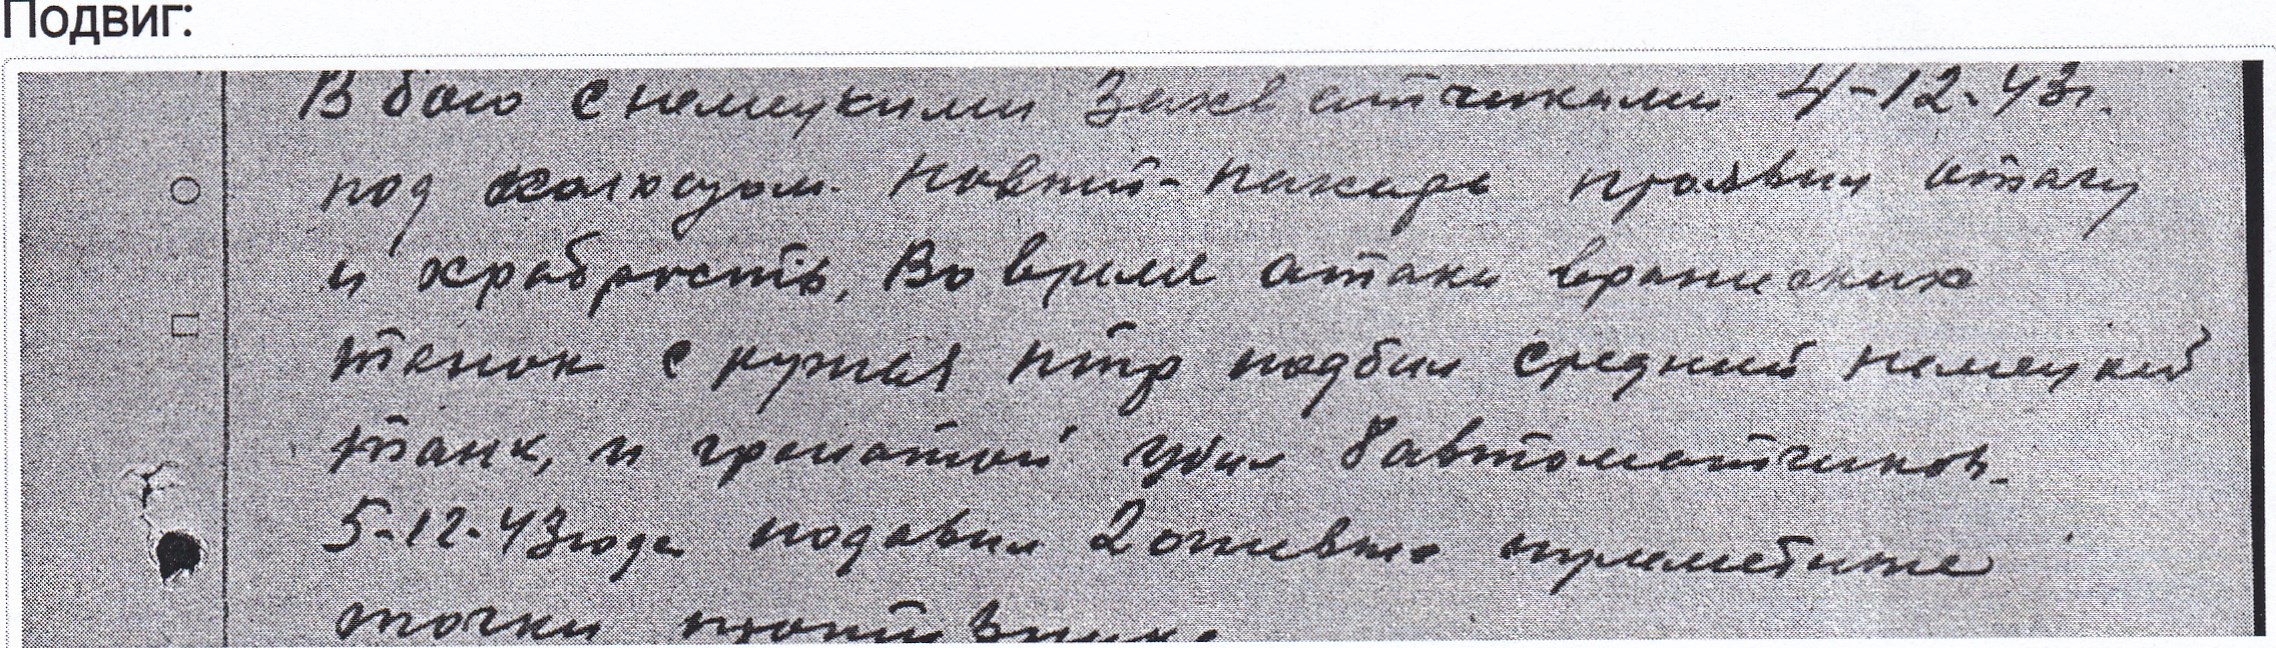 Подвиг:
В бою с немецкими захватчиками 4-12-43г.
под колхозом Новый-Пахарь проявил отвагу
и храбрость, Во время атаки вражеских
танок с ружья птр подбил средний немецкий
танк, и гранатой убил 8 автоматчиков.
5-12-43 года подавил 2 огневые пулеметные
точки противника
ПО